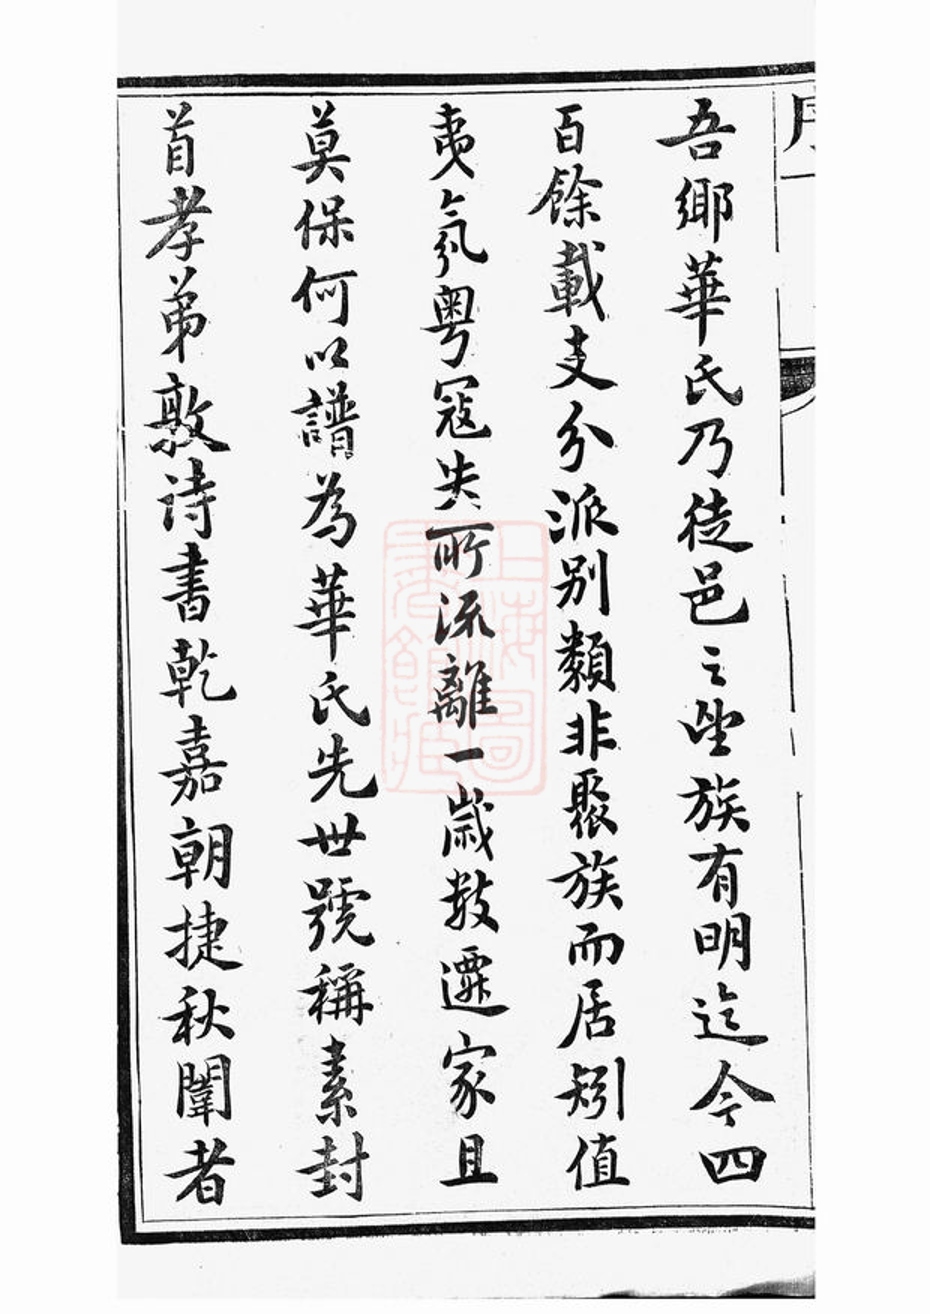 吾鄉華氏乃徒邑之望族有明迄今四
百餘載支分派别類非聚族而居矧值
夷氛粤寇失所流離一歲數遷家且
莫保何以譜為華氏先世號稱素封
首孝弟敦诗書乾嘉朝捷秋闈者
序一
上海圖書館藏